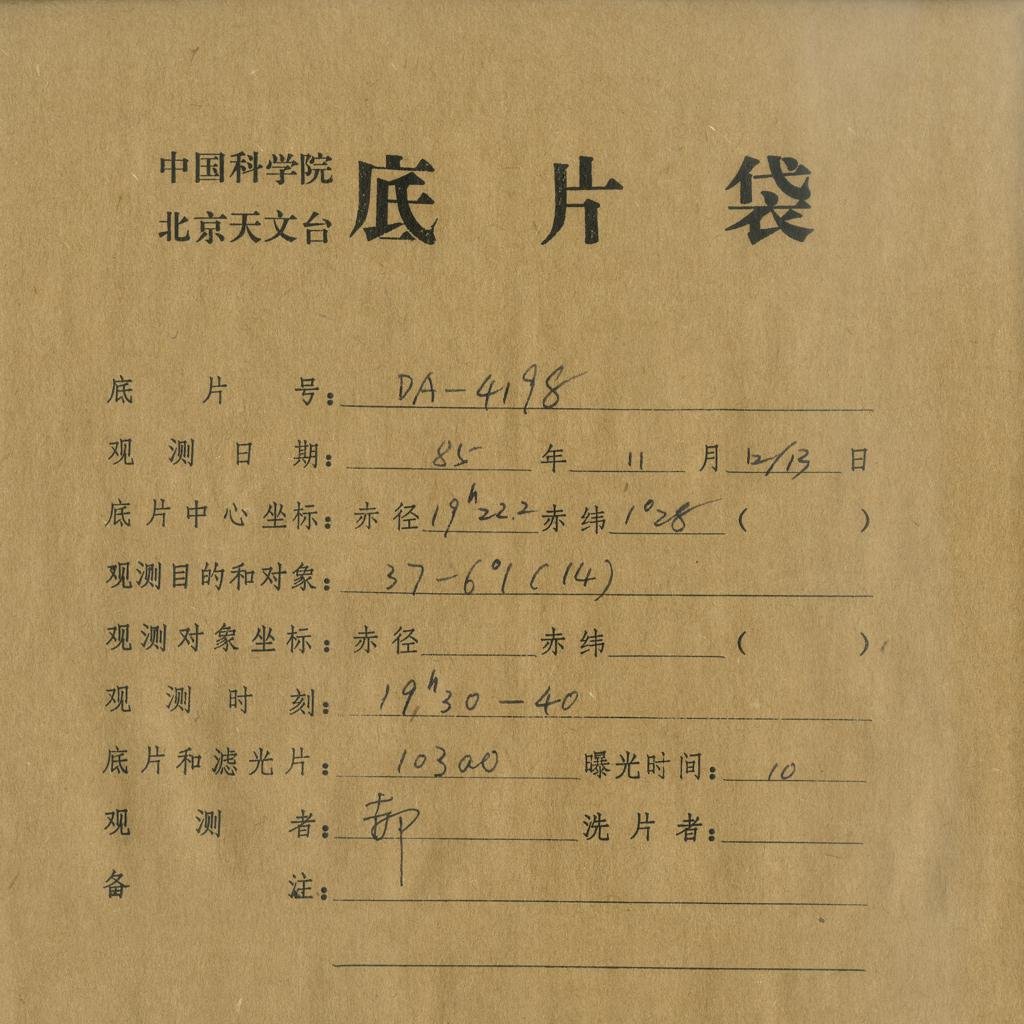 中国科学院
北京天文台
底片袋
底片号: DA-4198
观测日期: 85年11月12/13日
底片中心坐标: 赤径19ʰ22.2赤纬1°28 ( )
观测目的和对象: 37-6°1(14)
观测对象坐标: 赤径 赤纬 ( )
观测时刻: 19ʰ30-40
底片和滤光片: 103aO 曝光时间: 10
观测者: 郝 洗片者:
备注: